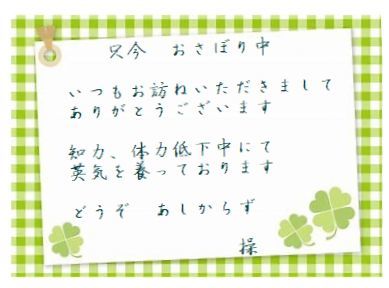 只今　おさぼり中
いつもお訪ねいただきまして
ありがとうございます
知力、体力低下中にて
英気を養っております
どうぞ　あしからず
操